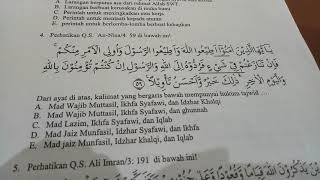 C. Larangan berputus asa dari rahmat Allah SWT.
D. Perintah untuk meningkatkan
E. Perintah untuk berlomba-lomba berbuat kebajikan
4. Perhatikan Q.S. An-Nisa/4: 59 di bawah ini!
يَا أَيُّهَا الَّذِينَ آمَنُوا أَطِيعُوا اللَّهَ وَأَطِيعُوا الرَّسُولَ وَأُولِي الْأَمْرِ مِنْكُمْ
فِي شَيْءٍ فَرُدُّوهُ إِلَى اللَّهِ وَالرَّسُولِ إِنْ كُنْتُمْ تُؤْمِنُونَ بِاللَّهِ
وَالْيَوْمِ الْآخِرِ ذَٰلِكَ خَيْرٌ وَأَحْسَنُ تَأْوِيلًا ﴿٥٩﴾
Dari ayat di atas, kalimat yang bergaris bawah mempunyai hukum tajwid ....
A. Mad Wajib Muttasil, Ikhfa Syafawi, dan Idzhar Khalqi
B. Mad Wajib Muttasil, Ikhfa Syafawi, dan ghunnah
C. Mad Lazim, Ikhfa Syafawi, dan Iqlab
D. Mad Jaiz Munfasil, Idzhar Syafawi, dan Ikhfa
E. Mad jaiz Munfasil, Idzhar khalqi, dan Iqlab
5. Perhatikan Q.S. Ali Imran/3: 191 di bawah ini!